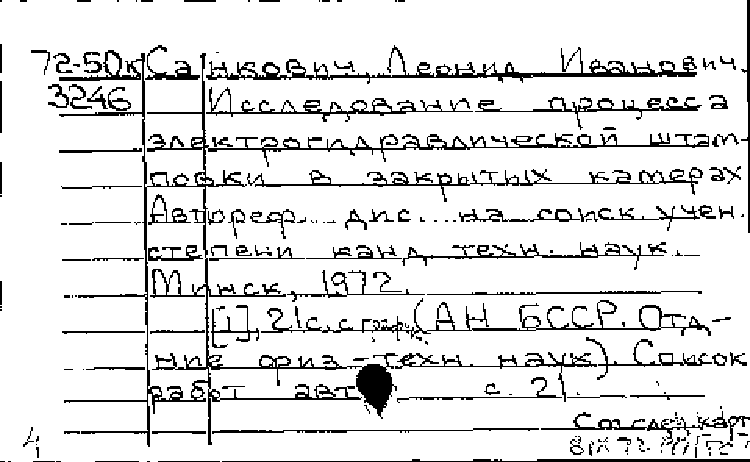 72-50к Санкович, Леонид Иванович.
3246 Исследование процесса
электрогидравлической штам-
повки в закрытых камерах
Автореф. дис. на соиск. учен.
степени канд. техн. наук.
Минск, 1972.
[1], 21 с. с граф. (АН БССР. Отд-
ние физ-техн. наук). Список
работ авт с. 21.
См. след. карт
4